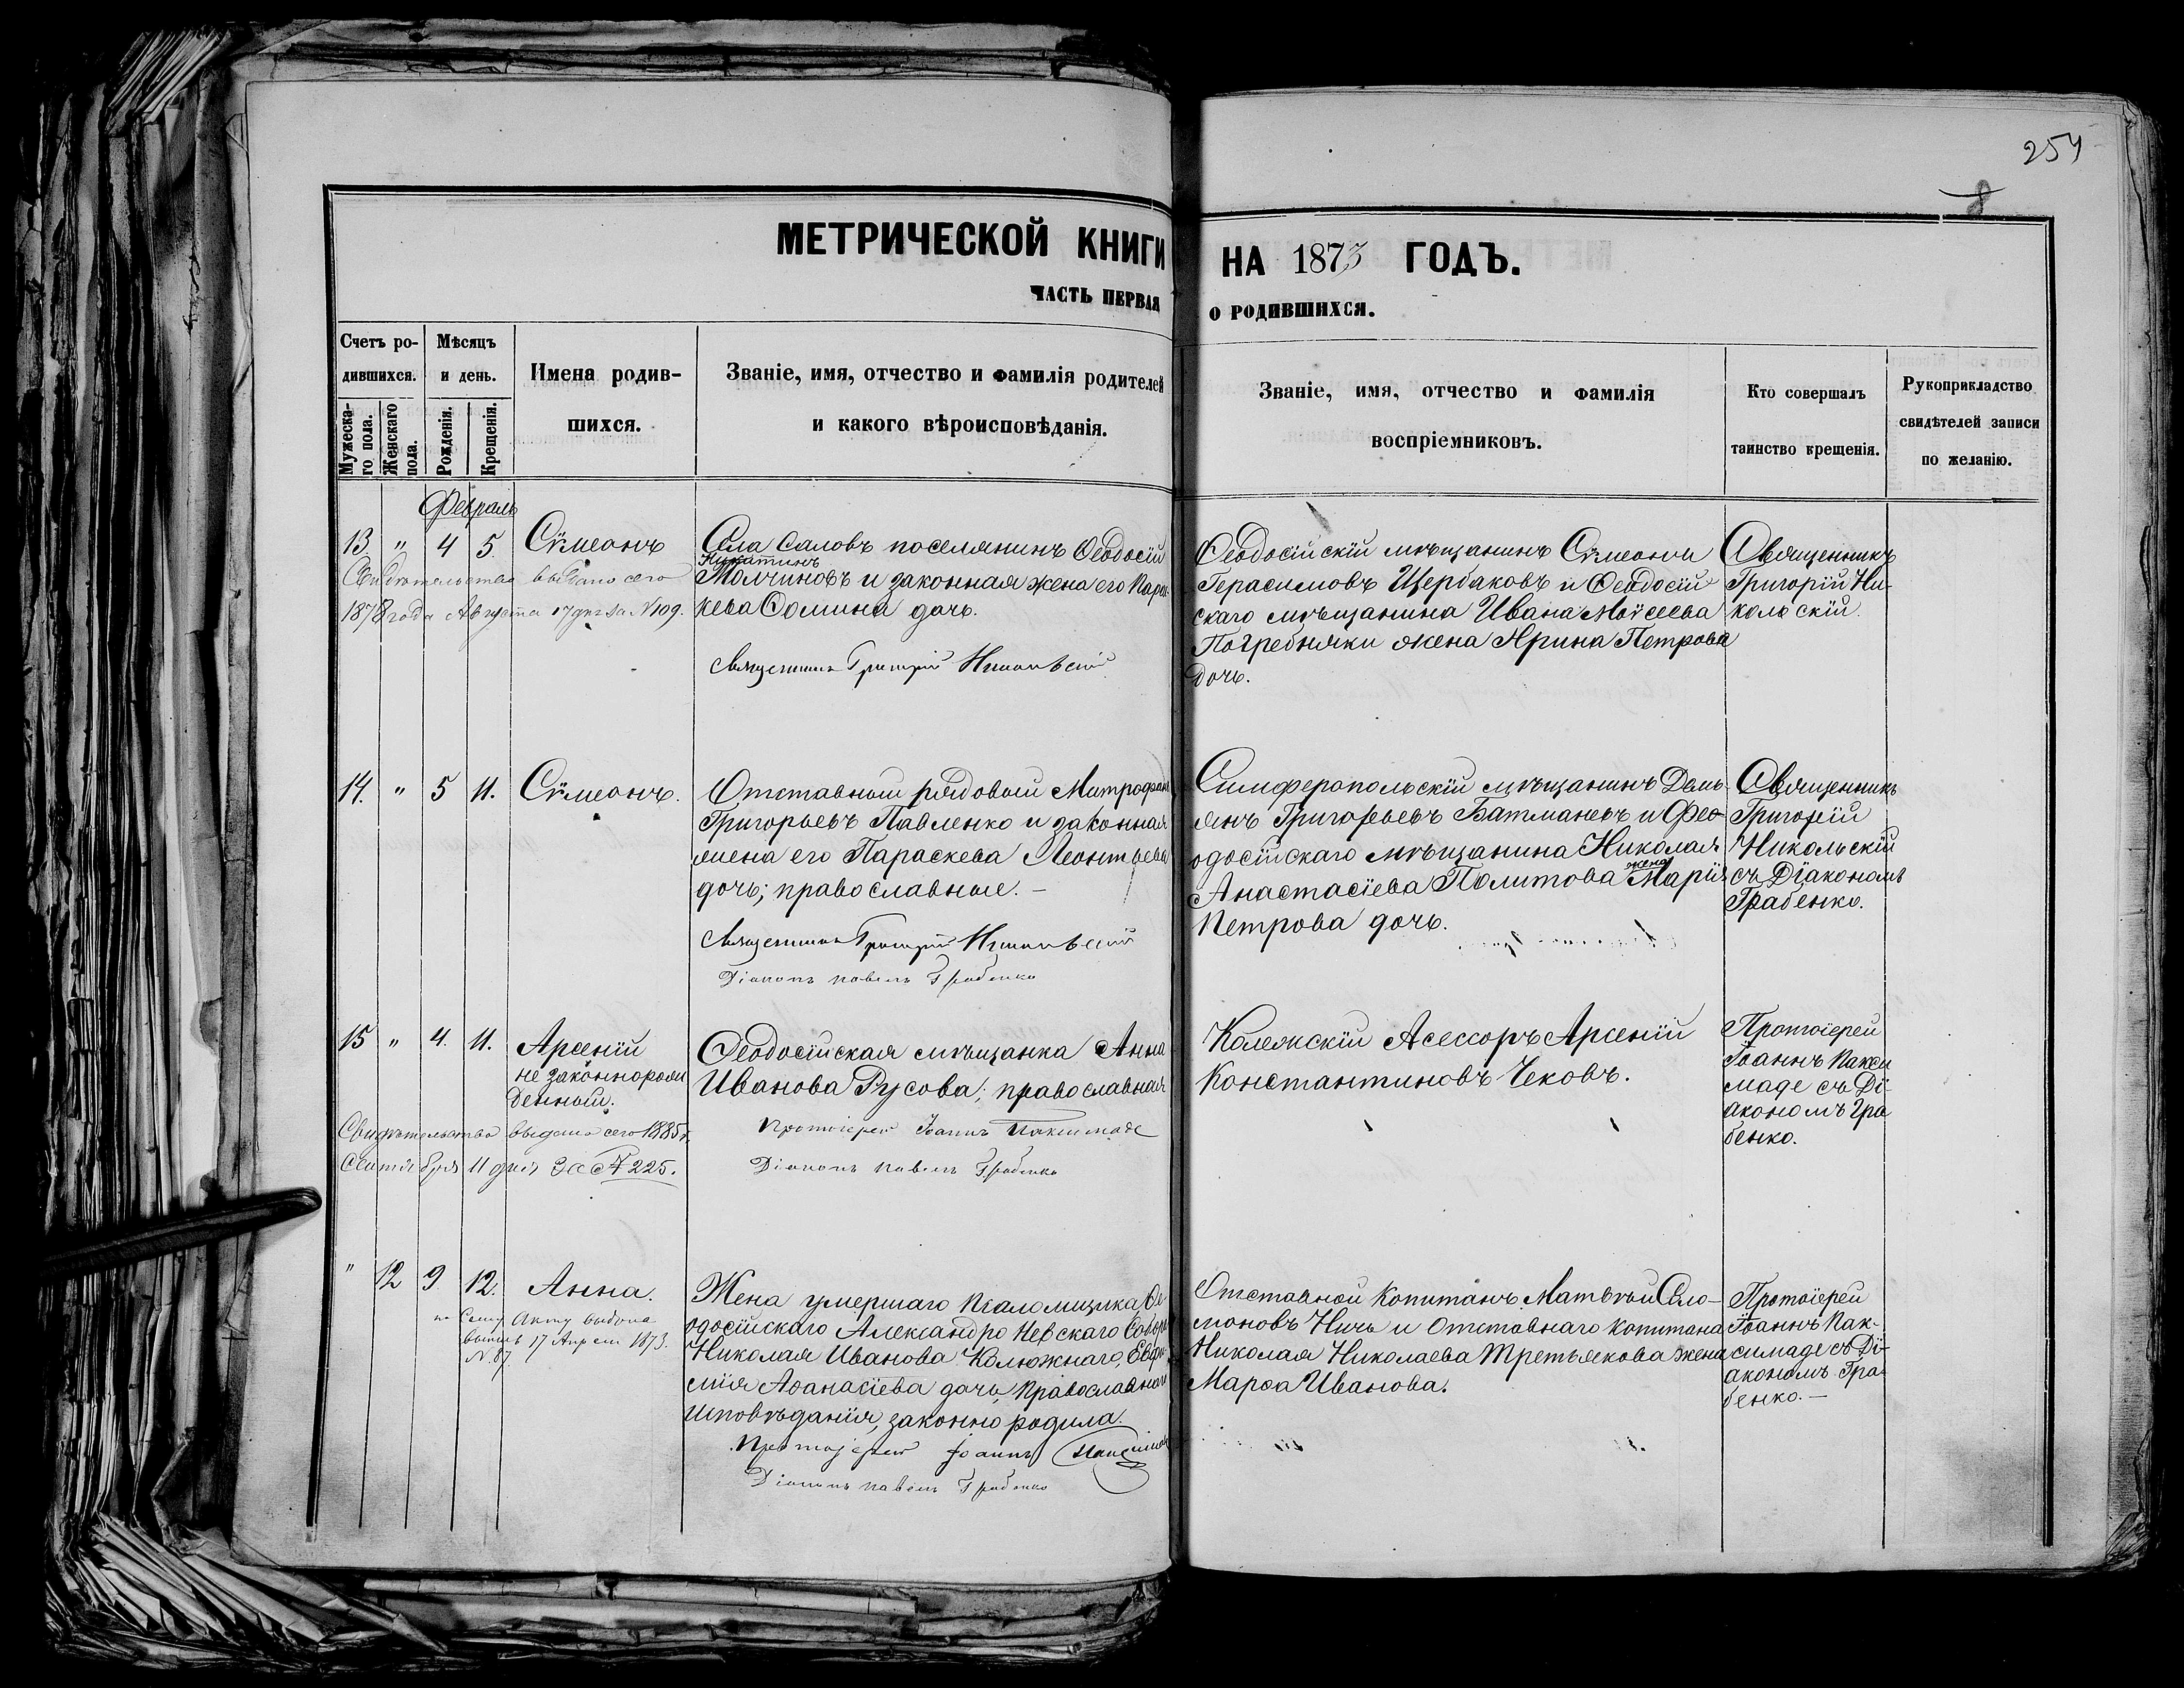 254
8
МЕТРИЧЕСКОЙ КНИГИ НА 1873 ГОДЪ.
ЧАСТЬ ПЕРВАЯ О РОДИВШИХСЯ.
Счетъ ро-
дившихся.
Мужеска-
го пола.
Женскаго
пола.
Мѣсяцъ
и день.
Рожденія.
Крещенія.
Имена родив-
шихся.
Званіе, имя, отчество и фамилія родителей
и какого вѣроисповѣданія.
Званіе, имя, отчество и фамилія
воспріемниковъ.
Кто совершалъ
таинство крещенія.
Рукоприкладство
свидѣтелей записи
по желанію.
Февраль
13 " 4 5 Сѵмеонъ
Свидѣтельство выдано сего
1878 года Августа 17 дня за N 109.
Села Саловъ поселянинъ Ѳеодосій
Никитинъ
Молчиновъ и законная жена его Парас-
кева Ѳомина дочь.
Священникъ Григорій Никольскій
Ѳеодосійскій мѣщанинъ Сѵмеонъ
Герасимовъ Щербаковъ и Ѳеодосій
скаго мѣщанина Ивана Моѵсеева
Погребняки жена Ирина Петрова
дочь.
Священникъ
Григорій Ни-
кольскій.
14. " 5 11. Сѵмеонъ.
Отставный рядовый Митрофанъ
Григорьевъ Павленко и законная
жена его Параскева Леонтьева
дочь; православные. —
Священникъ Григорій Никольскій
Діаконъ Павелъ Грабенко
Симферопольскій мѣщанинъ Демь-
янъ Григорьевъ Батманевъ и Фео-
одосійскаго мѣщанина Николая
Анастасіева Политова жена Марія
Петрова дочь.
Священникъ
Григорій
Никольскій
съ Діакономъ
Грабенко.
15 " 4. 11. Арсеній
незаконнорож
денный.
Свидѣтельство выдано сего 1885 г.
Сентября 11 дня За № 225.
Ѳеодосійская мѣщанка Анна
Иванова Русова; православная
Протоіерей Іоаннъ Паксимаде
Діаконъ Павелъ Грабенко
Колежскій Асессоръ Арсеній
Константиновъ Чековъ.
Протоіерей
Іоаннъ Пакси
маде съ Ді-
акономъ Гра
бенко.
" 12 9 12. Анна.
по Сему Акту выдана
выпись 17 Апреля 1873.
N. 87
Жена умершаго Псаломщика Ѳе-
одосійскаго Александро Невскаго Собора
Николая Иванова Калюжнаго, Евфи-
мія Аѳанасіева дочь, Православнаго
исповѣданія, законно родила.
Протоіерей Іоаннъ Паксимаде
Діаконъ Павелъ Грабенко
Отставной Копитанъ Матвѣй Соло-
моновъ Ничь и Отставнаго Копитана
Николая Николаева Третьякова жена
Марѳа Иванова.
Протоіерей
Іоаннъ Пак-
симаде съ Ді-
акономъ Гра-
бенко. —